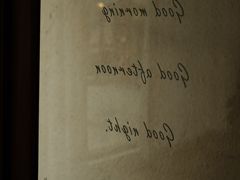 Good morning
Good afternoon
Good night.